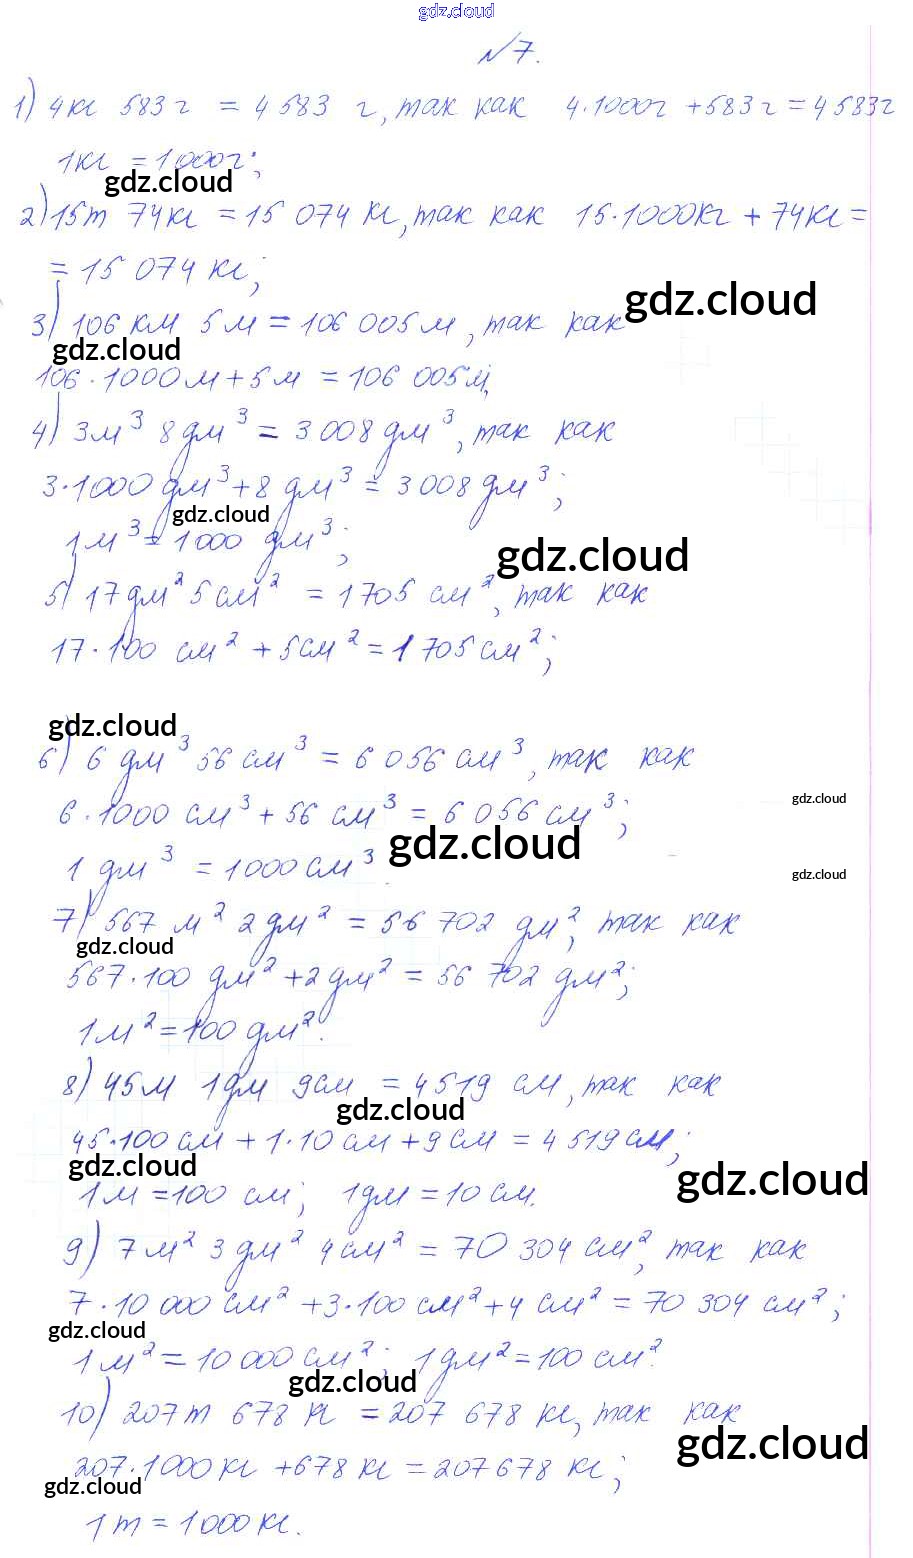 gdz.cloud
№7.
1) 4кг 583г = 4 583 г, так как 4·1000г + 583г = 4583г
1кг = 1 000г;
gdz.cloud
2) 15т 74кг = 15 074 кг, так как 15·1000кг + 74кг =
= 15 074 кг;
gdz.cloud
3) 106 км 5м = 106 005м, так как
gdz.cloud
106·1000м + 5м = 106 005м,
4) 3м³ 8дм³ = 3 008 дм³, так как
3·1000 дм³ + 8 дм³ = 3 008 дм³;
gdz.cloud
1м³ = 1 000 дм³;
gdz.cloud
5) 17дм² 5см² = 1705 см², так как
17·100 см² + 5см² = 1 705см²;
gdz.cloud
6) 6 дм³ 56см³ = 6 056 см³, так как
gdz.cloud
6·1000 см³ + 56 см³ = 6 056 см³;
gdz.cloud
1 дм³ = 1000см³
gdz.cloud
7) 567 м² 2дм² = 56 702 дм², так как
gdz.cloud
567·100 дм² + 2дм² = 56 702 дм²;
1м² = 100 дм².
8) 45м 1дм 9см = 4519 см, так как
gdz.cloud
45·100 см + 1·10 см + 9см = 4 519см;
gdz.cloud
gdz.cloud
1м = 100 см; 1дм = 10см.
9) 7м² 3 дм² 4см² = 70 304 см², так как
7·10 000 см² + 3·100 см² + 4 см² = 70 304 см²;
gdz.cloud
1м² = 10 000 см²; 1дм² = 100 см².
gdz.cloud
10) 207т 678 кг = 207 678 кг, так как
gdz.cloud
207·1000кг + 678 кг = 207678 кг;
gdz.cloud
1т = 1 000кг.